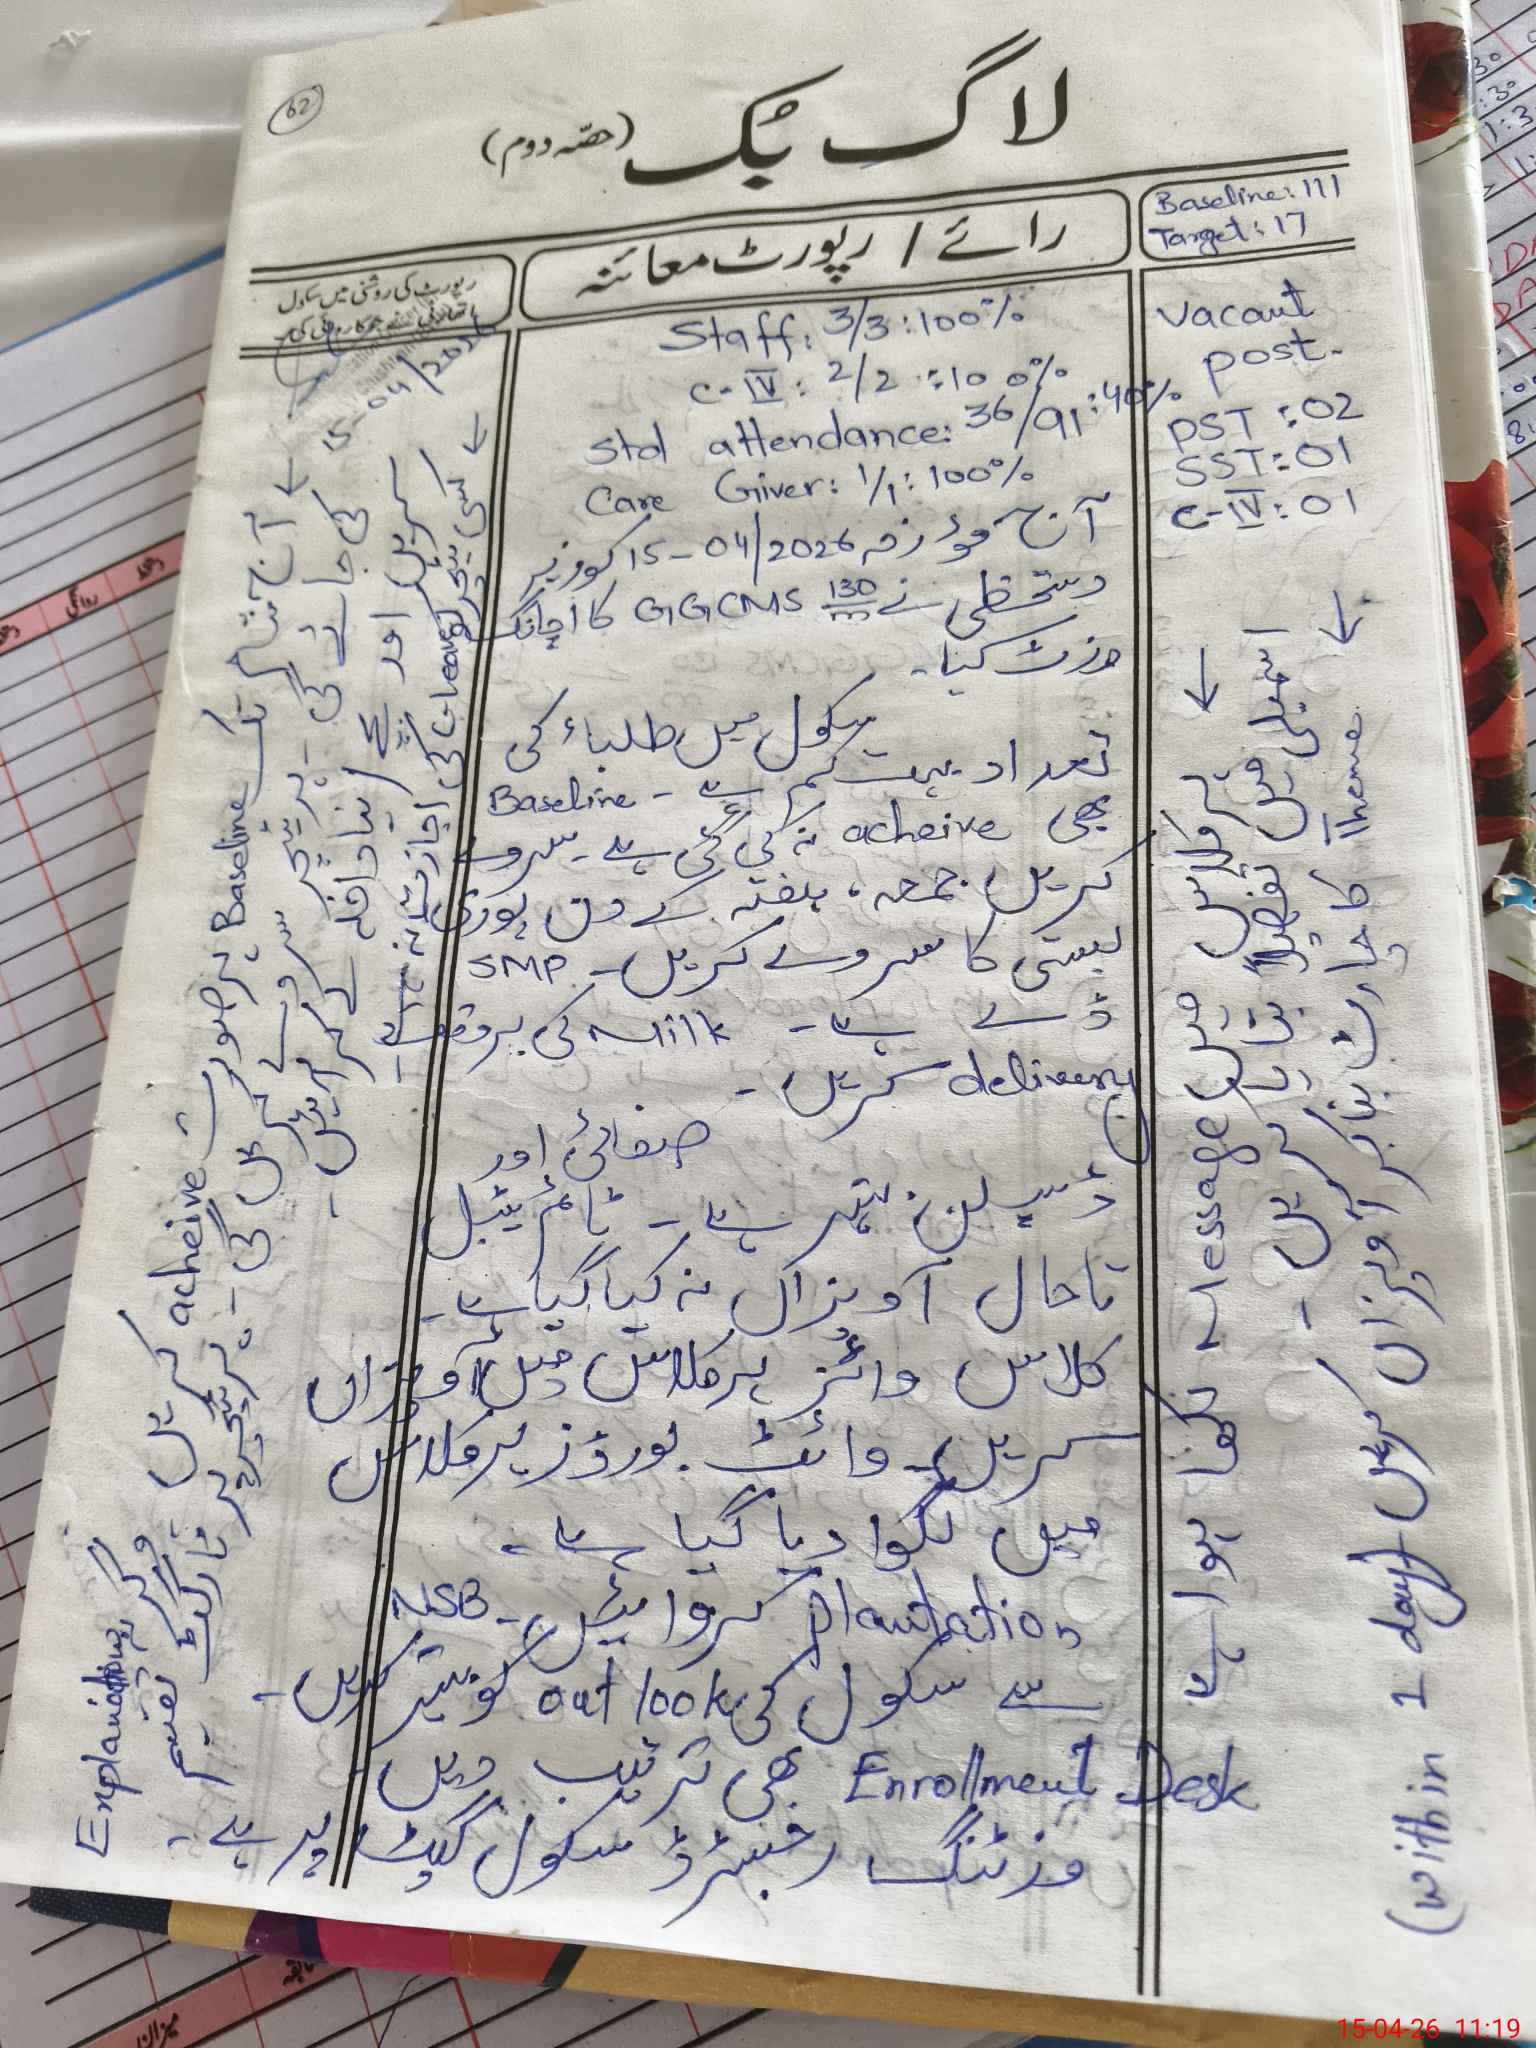 62
لاگ بک (حصّہ دوم)
Baseline: 111
Target: 17
رائے / رپورٹ معائنہ
رپورٹ کی روشنی میں سکول
Vacant
post-
PST : 02
SST : 01
C-IV : 01
Staff: 3/3 : 100%
C-IV : 2/2 : 100%
Std attendance: 36/91 : 40%
Care Giver: 1/1 : 100%
آج مؤرخہ 15-04/2026 کو زیر
دستخطی نے GGCMS 130/m کا اچانک
وزٹ کیا۔
سکول میں طلباء کی
تعداد بہت کم ہے۔ Baseline
بھی acheive نہ کی گئی ہے۔ سروے
کریں جمعہ، ہفتہ کے دن پوری
بستی کا سروے کریں۔ SMP
ڈے ہے۔ Milk کی بروقت
delivery کریں۔
صفائی اور
ڈسپلن بہتر ہے۔ ٹائم ٹیبل
تاحال آویزاں نہ کیا گیا ہے۔
کلاس وائز ہر کلاس میں آویزاں
کریں۔ وائٹ بورڈز ہر کلاس
میں لگوا دیا گیا ہے۔
Plantation کروائیں۔ NSB
سے سکول کی out look کو بہتر کریں۔
Enrollment Desk بھی ترتیب دیں
وزٹنگ رجسٹرڈ سکول گیٹ پر ہے۔
15-04/2026
آج شام تک Baseline ہر صورت acheive کریں وگرنہ Explanation
کی جائے گی۔ ٹیچرز سروے کریں گی۔ ہر ٹیچر پر ٹارگٹ تقسیم
کریں اور نیا داخلہ لے کر آئیں۔
کسی ٹیچر کو leave کی اجازت نہ ہے۔
Message لکھا ہوا ہے
اسمبلی میں
Theme کا چارٹ بنا کر آویزاں کریں (within 1 day)
15-04-26 11:19